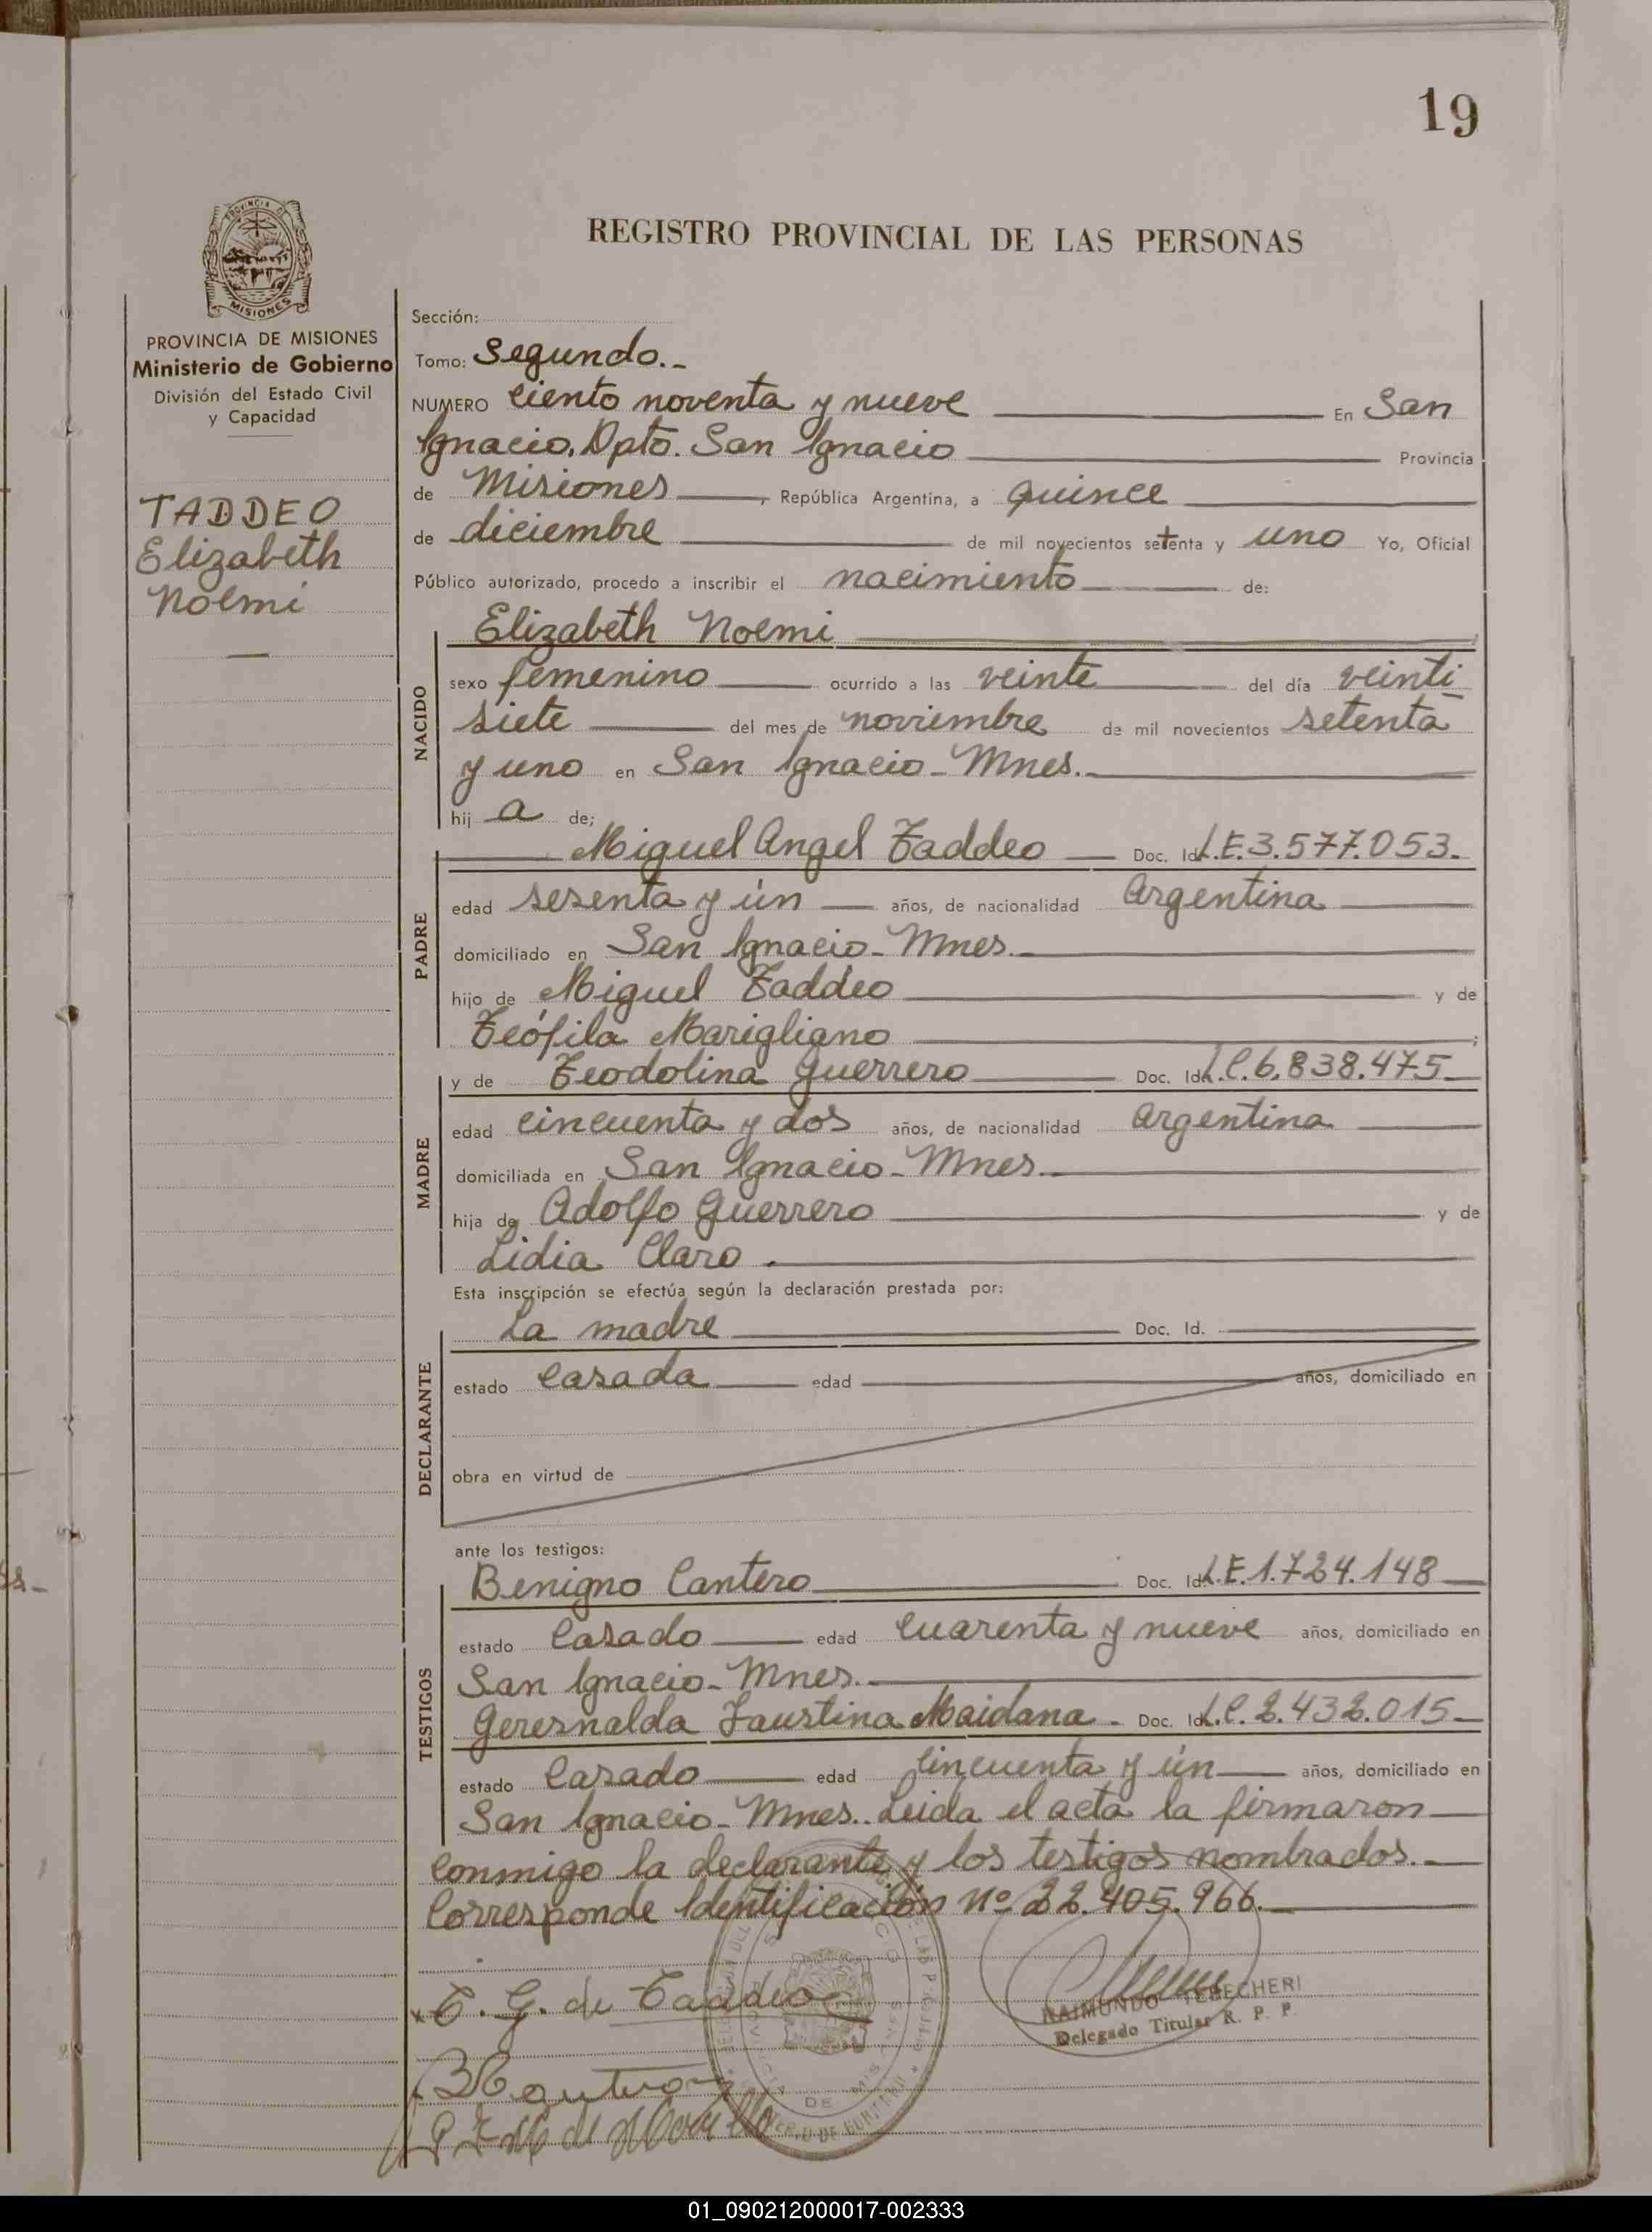 19
REGISTRO PROVINCIAL DE LAS PERSONAS
PROVINCIA DE MISIONES
Ministerio de Gobierno
División del Estado Civil
y Capacidad
TADDEO
Elizabeth
Noemi
Sección:
Tomo: Segundo.-
NUMERO ciento noventa y nueve En San
Ignacio, Dpto. San Ignacio Provincia
de Misiones, República Argentina, a quince
de diciembre de mil novecientos setenta y uno Yo, Oficial
Público autorizado, procedo a inscribir el nacimiento de:
Elizabeth Noemi
NACIDO
sexo femenino ocurrido a las veinte del día veinti
siete del mes de noviembre de mil novecientos setenta
y uno en San Ignacio - Mnes.
hij a de;
Miguel Angel Taddeo Doc. Id. L.E. 3.577.053.
PADRE
edad sesenta y ún años, de nacionalidad Argentina
domiciliado en San Ignacio - Mnes.
hijo de Miguel Taddeo y de
Teófila Marigliano ;
y de Teodolina Guerrero Doc. Id. L.C. 6.838.475
MADRE
edad cincuenta y dos años, de nacionalidad argentina
domiciliada en San Ignacio - Mnes.
hija de Adolfo Guerrero y de
Lidia Claro.
Esta inscripción se efectúa según la declaración prestada por:
La madre Doc. Id.
DECLARANTE
estado casada edad años, domiciliado en
obra en virtud de
ante los testigos:
Benigno Cantero Doc. Id. L.E. 1.724.148
TESTIGOS
estado casado edad cuarenta y nueve años, domiciliado en
San Ignacio - Mnes.
Geresnalda Faustina Maidana - Doc. Id. L.C. 2.432.015
estado casado edad cincuenta y ún años, domiciliado en
San Ignacio - Mnes.. Leida el acta la firmaron
conmigo la declarante y los testigos nombrados.
Corresponde Identificación nº 22.405.966.
T. G. de Taddeo
RAIMUNDO TEBECHERI
Delegado Titular R. P. P.
BCantero
01_090212000017-002333